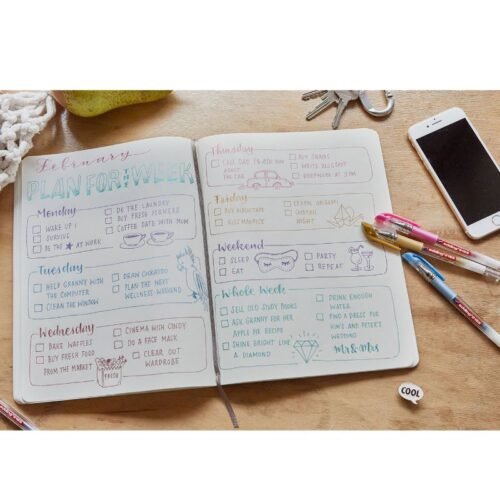 February
PLAN FOR! WEEK
Monday
WAKE UP!
SURVIVE
BE THE AT WORK
DO THE LAUNDRY
BUY FRESH FLOWERS
COFFEE DATE WITH MOM
Tuesday
HELP GRANNY WITH
THE COMPUTER
CLEAN THE WINDOW
PLAN THE NEXT
WELLNESS WEEKEND
Wednesday
BAKE WAFFLES
BUY FRESH FOOD
FROM THE MARKET
CINEMA WITH CINDY
DO A FACE MASK
CLEAR OUT
WARDROBE
FRESH
Thursday
CALL DAD TO ASK HIM
ABOUT
THE CAR
WRITE BLOGPOST
Friday
BUY WASHI TAPE
LEARN ORIGAMI
NIGHT
Weekend
SLEEP
EAT
PARTY
REPEAT
Whole Week
SELL OLD STUDY BOOKS
ASK GRANNY FOR HER
APPLE PIE RECIPE
SHINE BRIGHT LIKE
A DIAMOND
DRINK ENOUGH
WATER
FIND A DRESS FOR
KIM'S AND PETER'S
WEDDING
Mr & Mrs
COOL